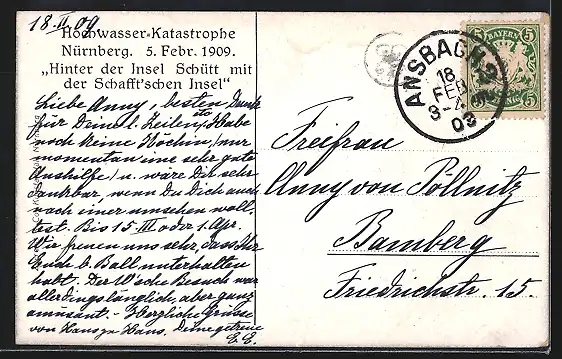 18. II 09
Hochwasser-Katastrophe
Nürnberg. 5. Febr. 1909.
„Hinter der Insel Schütt mit
der Schafft'schen Insel“
Liebe Anny, besten Dank
für Deine l. Zeilen. Habe
noch keine Köchin, nur
momentan eine sehr gute
Aushilfe, u. wäre Dir sehr
dankbar, wenn Du Dich auch
nach einer umsehen woll,
test. Bis 15. III oder 1. Apr.
Wir freuen uns sehr, dass Ihr
Euch b. Ball unterhalten
habt. Der Besuch war
allerdings länglich, aber ganz
amüsant. – Herzliche Grüsse
von Haus zu Haus. Deine getreue
E.E.
ANSBACH 2
18
FEB
3-4
09
BAYERN
5 5
Freifrau
Anny von Pöllnitz
Bamberg
Friedrichstr. 15.